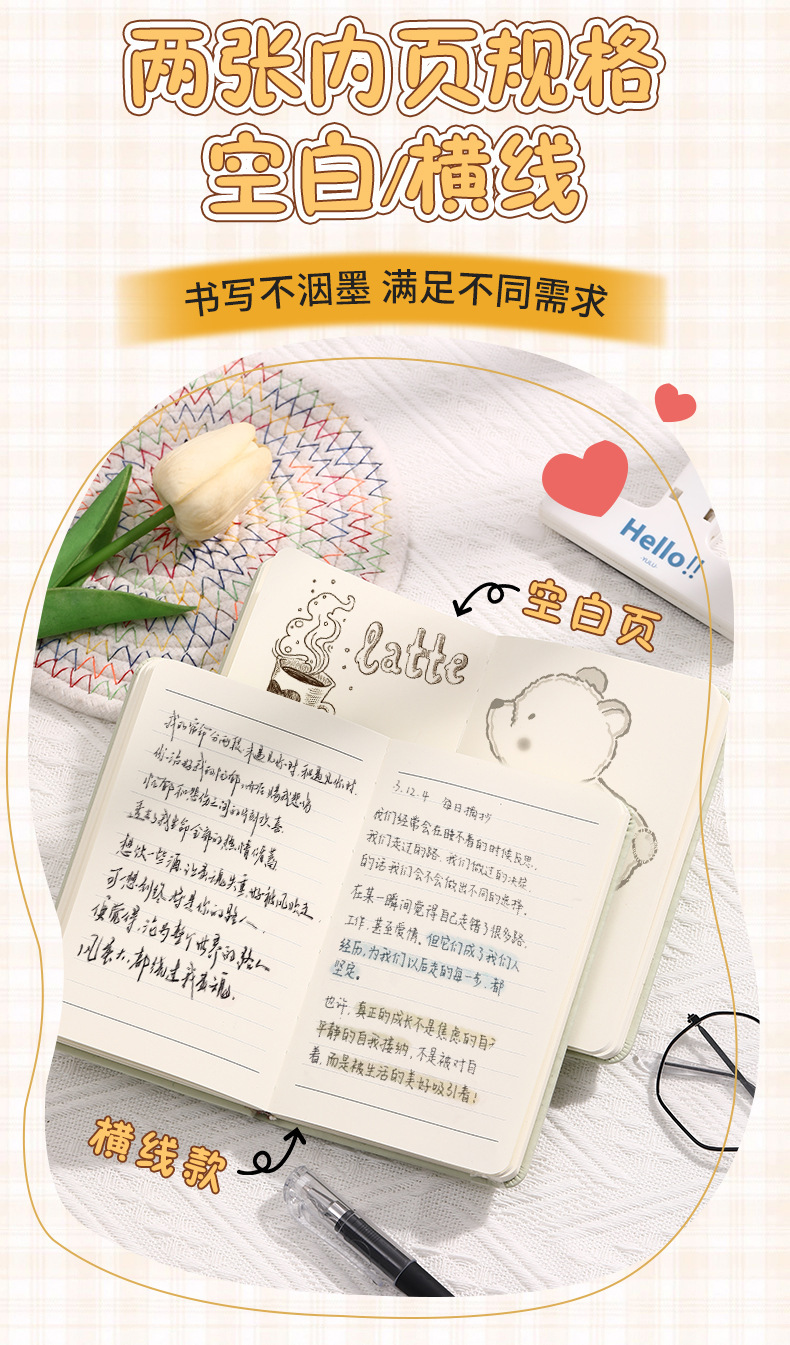 两张内页规格
空白/横线
书写不洇墨 满足不同需求
Hello!!
·YULU·
空白页
latte
我的宿命分两段,未遇见你时,和遇见你时.
你治好我的忧郁,而后赐我悲伤
忧郁和悲伤之间的片刻欢喜
透支了我生命全部的热情储蓄
想饮一些酒,让灵魂失重,好被风吹走.
可想到终将是你的路人.
便觉得,沦为整个世界的路人
风景大,都绕过我灵魂.
3.12.4 每日摘抄
我们经常会在睡不着的时候反思.
我们走过的路.我们做过的决定
的话我们会不会做出不同的选择.
在某一瞬间觉得自己走错了很多路.
工作.甚至爱情.但它们成了我们人
经历,为我们以后走的每一步.都
坚定。
也许,真正的成长不是焦虑的自?
平静的自我接纳,不是被对自
着,而是被生活的美好吸引着!
横线款